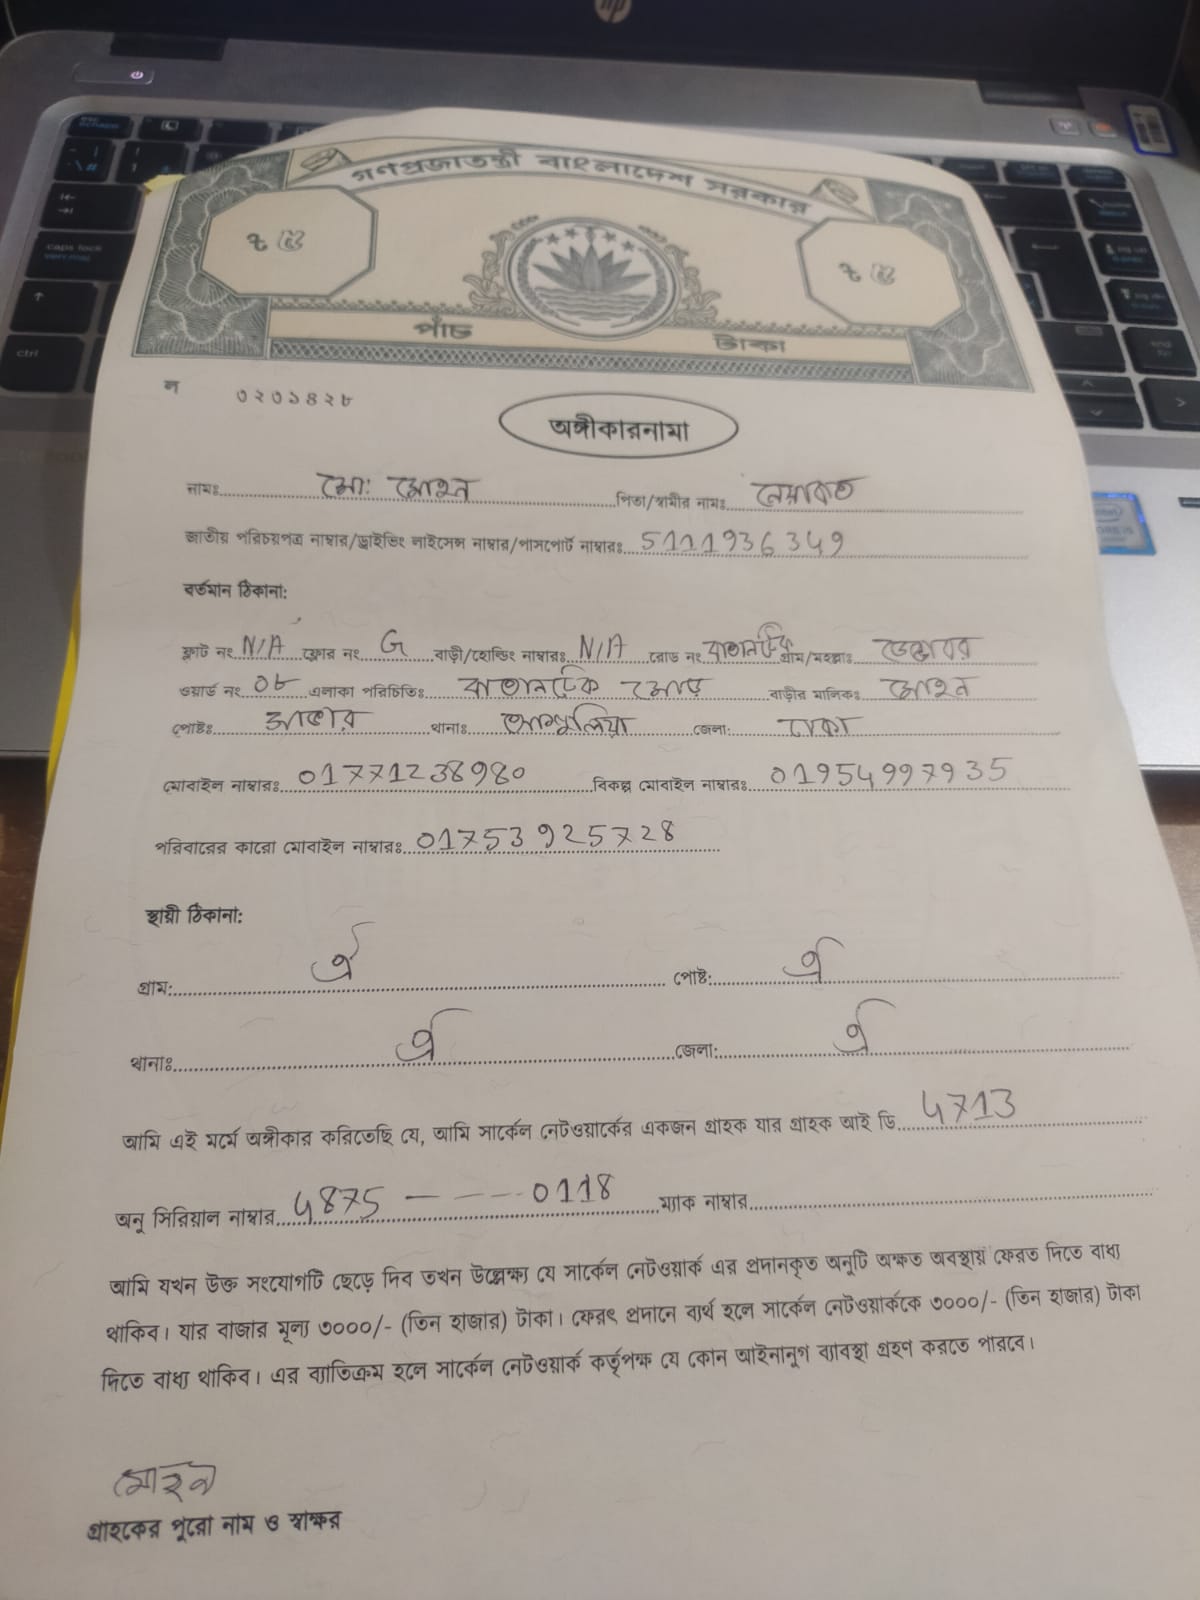 গণপ্রজাতন্ত্রী বাংলাদেশ সরকার
৳ ৫ ৳ ৫
পাঁচ টাকা
ন ৩২৩১৪২৮
অঙ্গীকারনামা
নামঃ মোঃ মোহন পিতা/স্বামীর নামঃ লেয়াকত
জাতীয় পরিচয়পত্র নাম্বার/ড্রাইভিং লাইসেন্স নাম্বার/পাসপোর্ট নাম্বারঃ 5111936349
বর্তমান ঠিকানা:
ফ্লাট নং N/A ফ্লোর নং G বাড়ী/হোল্ডিং নাম্বারঃ N/A রোড নং বাতানটেক গ্রাম/মহল্লাঃ
ওয়ার্ড নং ০৮ এলাকা পরিচিতিঃ বাতানটেক মোড় বাড়ীর মালিকঃ মোহন
পোষ্টঃ সাভার থানাঃ আশুলিয়া জেলা: ঢাকা
মোবাইল নাম্বারঃ 01771238980 বিকল্প মোবাইল নাম্বারঃ 01954997935
পরিবারের কারো মোবাইল নাম্বারঃ 01753925728
স্থায়ী ঠিকানা:
গ্রাম: ঐ পোষ্ট: ঐ
থানাঃ ঐ জেলা: ঐ
আমি এই মর্মে অঙ্গীকার করিতেছি যে, আমি সার্কেল নেটওয়ার্কের একজন গ্রাহক যার গ্রাহক আই ডি 4713
অনু সিরিয়াল নাম্বার 4875 ---- 0118 ম্যাক নাম্বার
আমি যখন উক্ত সংযোগটি ছেড়ে দিব তখন উল্লেক্ষ্য যে সার্কেল নেটওয়ার্ক এর প্রদানকৃত অনুটি অক্ষত অবস্থায় ফেরত দিতে বাধ্য
থাকিব। যার বাজার মূল্য ৩০০০/- (তিন হাজার) টাকা। ফেরৎ প্রদানে ব্যর্থ হলে সার্কেল নেটওয়ার্ককে ৩০০০/- (তিন হাজার) টাকা
দিতে বাধ্য থাকিব। এর ব্যাতিক্রম হলে সার্কেল নেটওয়ার্ক কর্তৃপক্ষ যে কোন আইনানুগ ব্যাবস্থা গ্রহণ করতে পারবে।
মোহন
গ্রাহকের পুরো নাম ও স্বাক্ষর